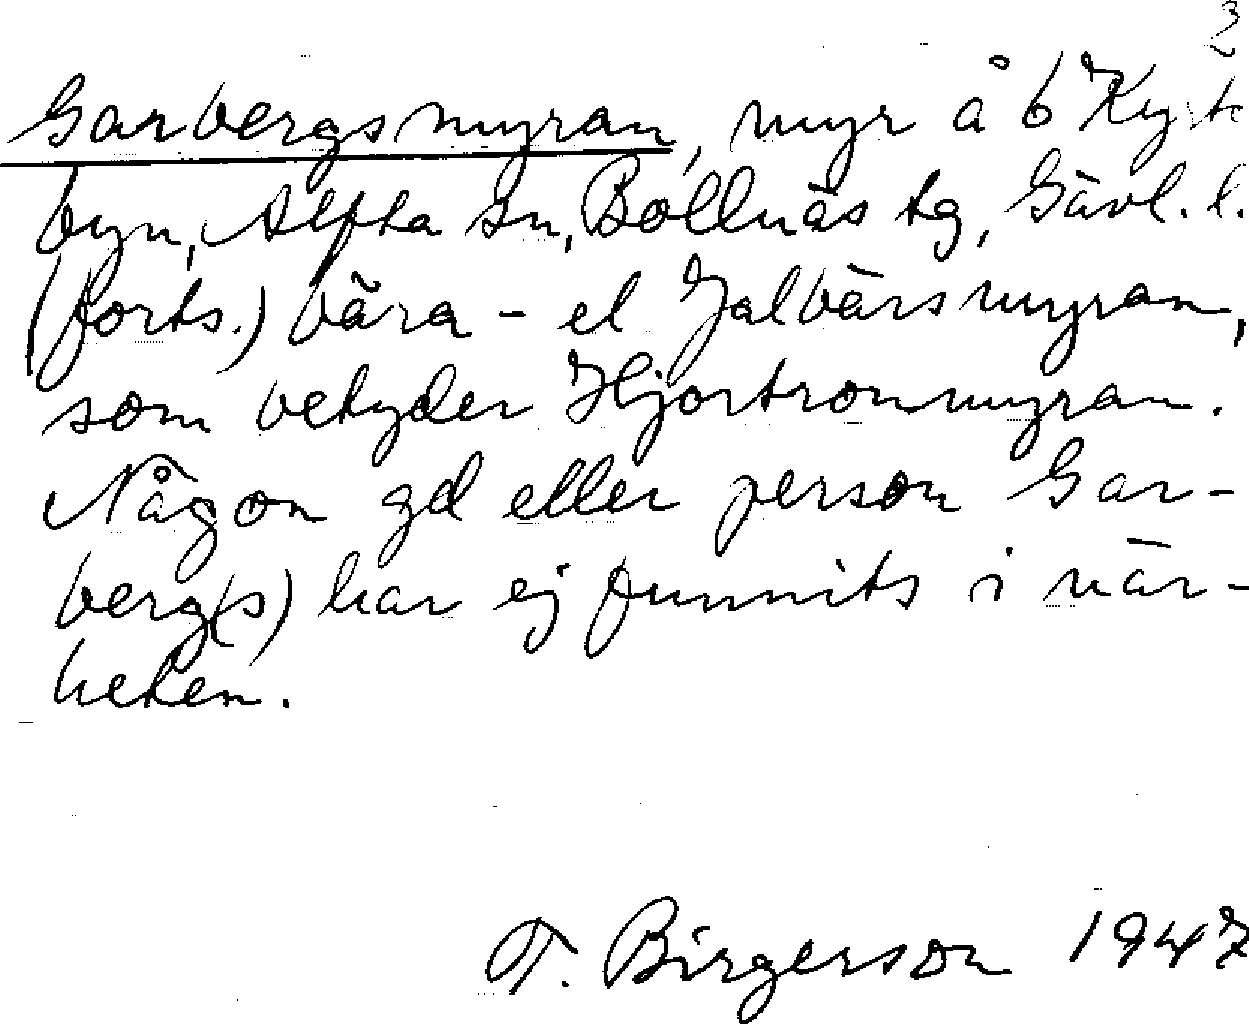 2
Garbergsmyran, myr å 6 Kyrk
byn, Alfta sn, Bollnäs tg, Gävl. l.
(forts.) bära - el Jalbärsmyran,
som betyder Hjortronmyran.
Någon gd eller person Gar-
berg(s) har ej funnits i när-
heten.
T. Birgerson 1947